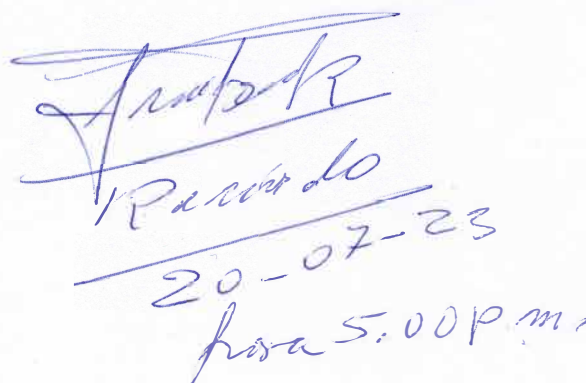 Recibido
20-07-23
hora 5:00 p.m.